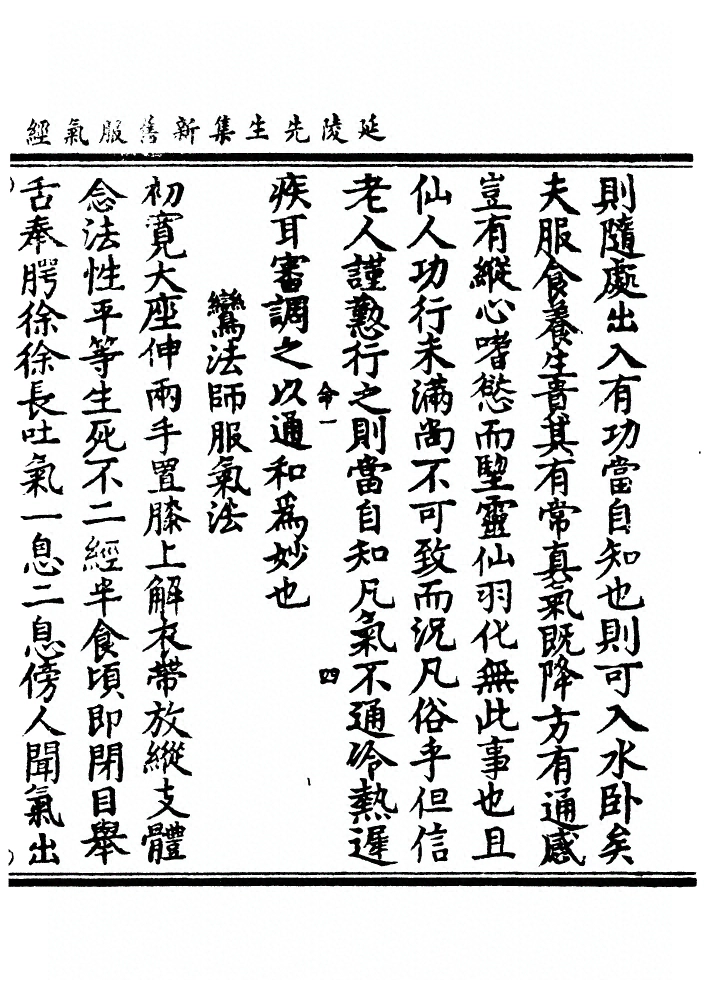 延陵先生集新舊服氣經
則隨處出入有功當自知也則可入水卧矣
夫服食養生貴其有常真氣既降方有通感
豈有縱心嗜慾而朢靈仙羽化無此事也且
仙人功行未滿尚不可致而況凡俗乎但信
老人謹懃行之則當自知凡氣不通冷熱遲
命一 四
疾耳審調之以通和為妙也
鸞法師服氣法
初寬大座伸兩手置膝上解衣帶放縱支體
念法性平等生死不二經半食頃即閉目舉
舌奉腭徐徐長吐氣一息二息傍人聞氣出